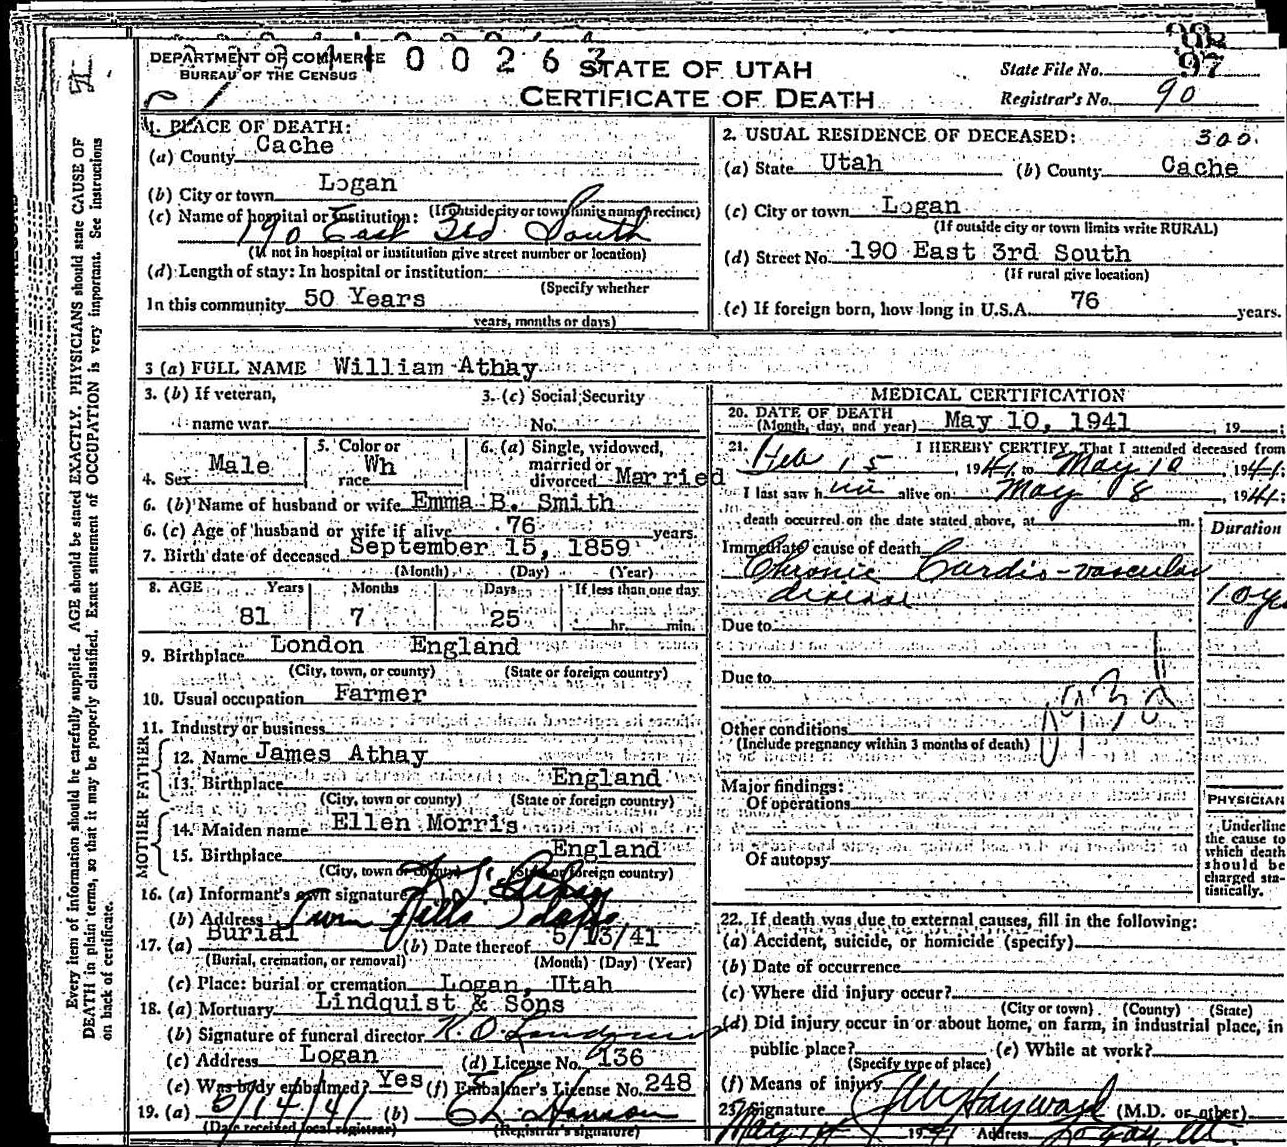 DEPARTMENT OF COMMERCE
BUREAU OF THE CENSUS
4 1 0 0 2 6 3
STATE OF UTAH
CERTIFICATE OF DEATH
State File No. 97
Registrar's No. 90
1. PLACE OF DEATH:
(a) County Cache
(b) City or town Logan
(If outside city or town limits name precinct)
(c) Name of hospital or institution:
190 East 3rd South
(If not in hospital or institution give street number or location)
(d) Length of stay: In hospital or institution:
(Specify whether
In this community 50 Years
years, months or days)
2. USUAL RESIDENCE OF DECEASED: 300
(a) State Utah (b) County Cache
(c) City or town Logan
(If outside city or town limits write RURAL)
(d) Street No. 190 East 3rd South
(If rural give location)
(e) If foreign born, how long in U.S.A. 76 years.
3 (a) FULL NAME William Athay
3. (b) If veteran,
name war
3. (c) Social Security
No.
4. Sex Male
5. Color or
race Wh
6. (a) Single, widowed,
married or
divorced Married
6. (b) Name of husband or wife Emma B. Smith
6. (c) Age of husband or wife if alive 76 years.
7. Birth date of deceased September 15, 1859
(Month) (Day) (Year)
8. AGE Years Months Days If less than one day
81 7 25 hr. min.
9. Birthplace London England
(City, town, or county) (State or foreign country)
10. Usual occupation Farmer
11. Industry or business
FATHER
12. Name James Athay
13. Birthplace England
(City, town or county) (State or foreign country)
MOTHER
14. Maiden name Ellen Morris
15. Birthplace England
(City, town or county) (State or foreign country)
16. (a) Informant's own signature
(b) Address Twin Falls Idaho
17. (a) Burial (b) Date thereof 5/13/41
(Burial, cremation, or removal) (Month) (Day) (Year)
(c) Place: burial or cremation Logan, Utah
18. (a) Mortuary Lindquist & Sons
(b) Signature of funeral director
(c) Address Logan (d) License No. 136
(e) Was body embalmed? Yes (f) Embalmer's License No. 248
19. (a) 5/14/41 (b)
(Date received local registrar) (Registrar's signature)
MEDICAL CERTIFICATION
20. DATE OF DEATH
(Month, day, and year) May 10, 1941, 19 ;
21. I HEREBY CERTIFY, That I attended deceased from
Feb 15, 1941, to May 10 1941;
I last saw him alive on May 8, 1941
death occurred on the date stated above, at m.
Duration
Immediate cause of death
Chronic Cardio-vascular
disease 10 ye
Due to
Due to
093d
Other conditions
(Include pregnancy within 3 months of death)
Major findings:
Of operations
Of autopsy
PHYSICIAN
Underline
the cause to
which death
should be
charged sta-
tistically.
22. If death was due to external causes, fill in the following:
(a) Accident, suicide, or homicide (specify)
(b) Date of occurrence
(c) Where did injury occur?
(City or town) (County) (State)
(d) Did injury occur in or about home, on farm, in industrial place, in
public place? (e) While at work?
(Specify type of place)
(f) Means of injury
23. Signature Hayward (M.D. or other)
May 1941 Address Logan Ut
Every item of information should be carefully supplied. AGE should be stated EXACTLY. PHYSICIANS should state CAUSE OF
DEATH in plain terms, so that it may be properly classified. Exact statement of OCCUPATION is very important. See instructions
on back of certificate.